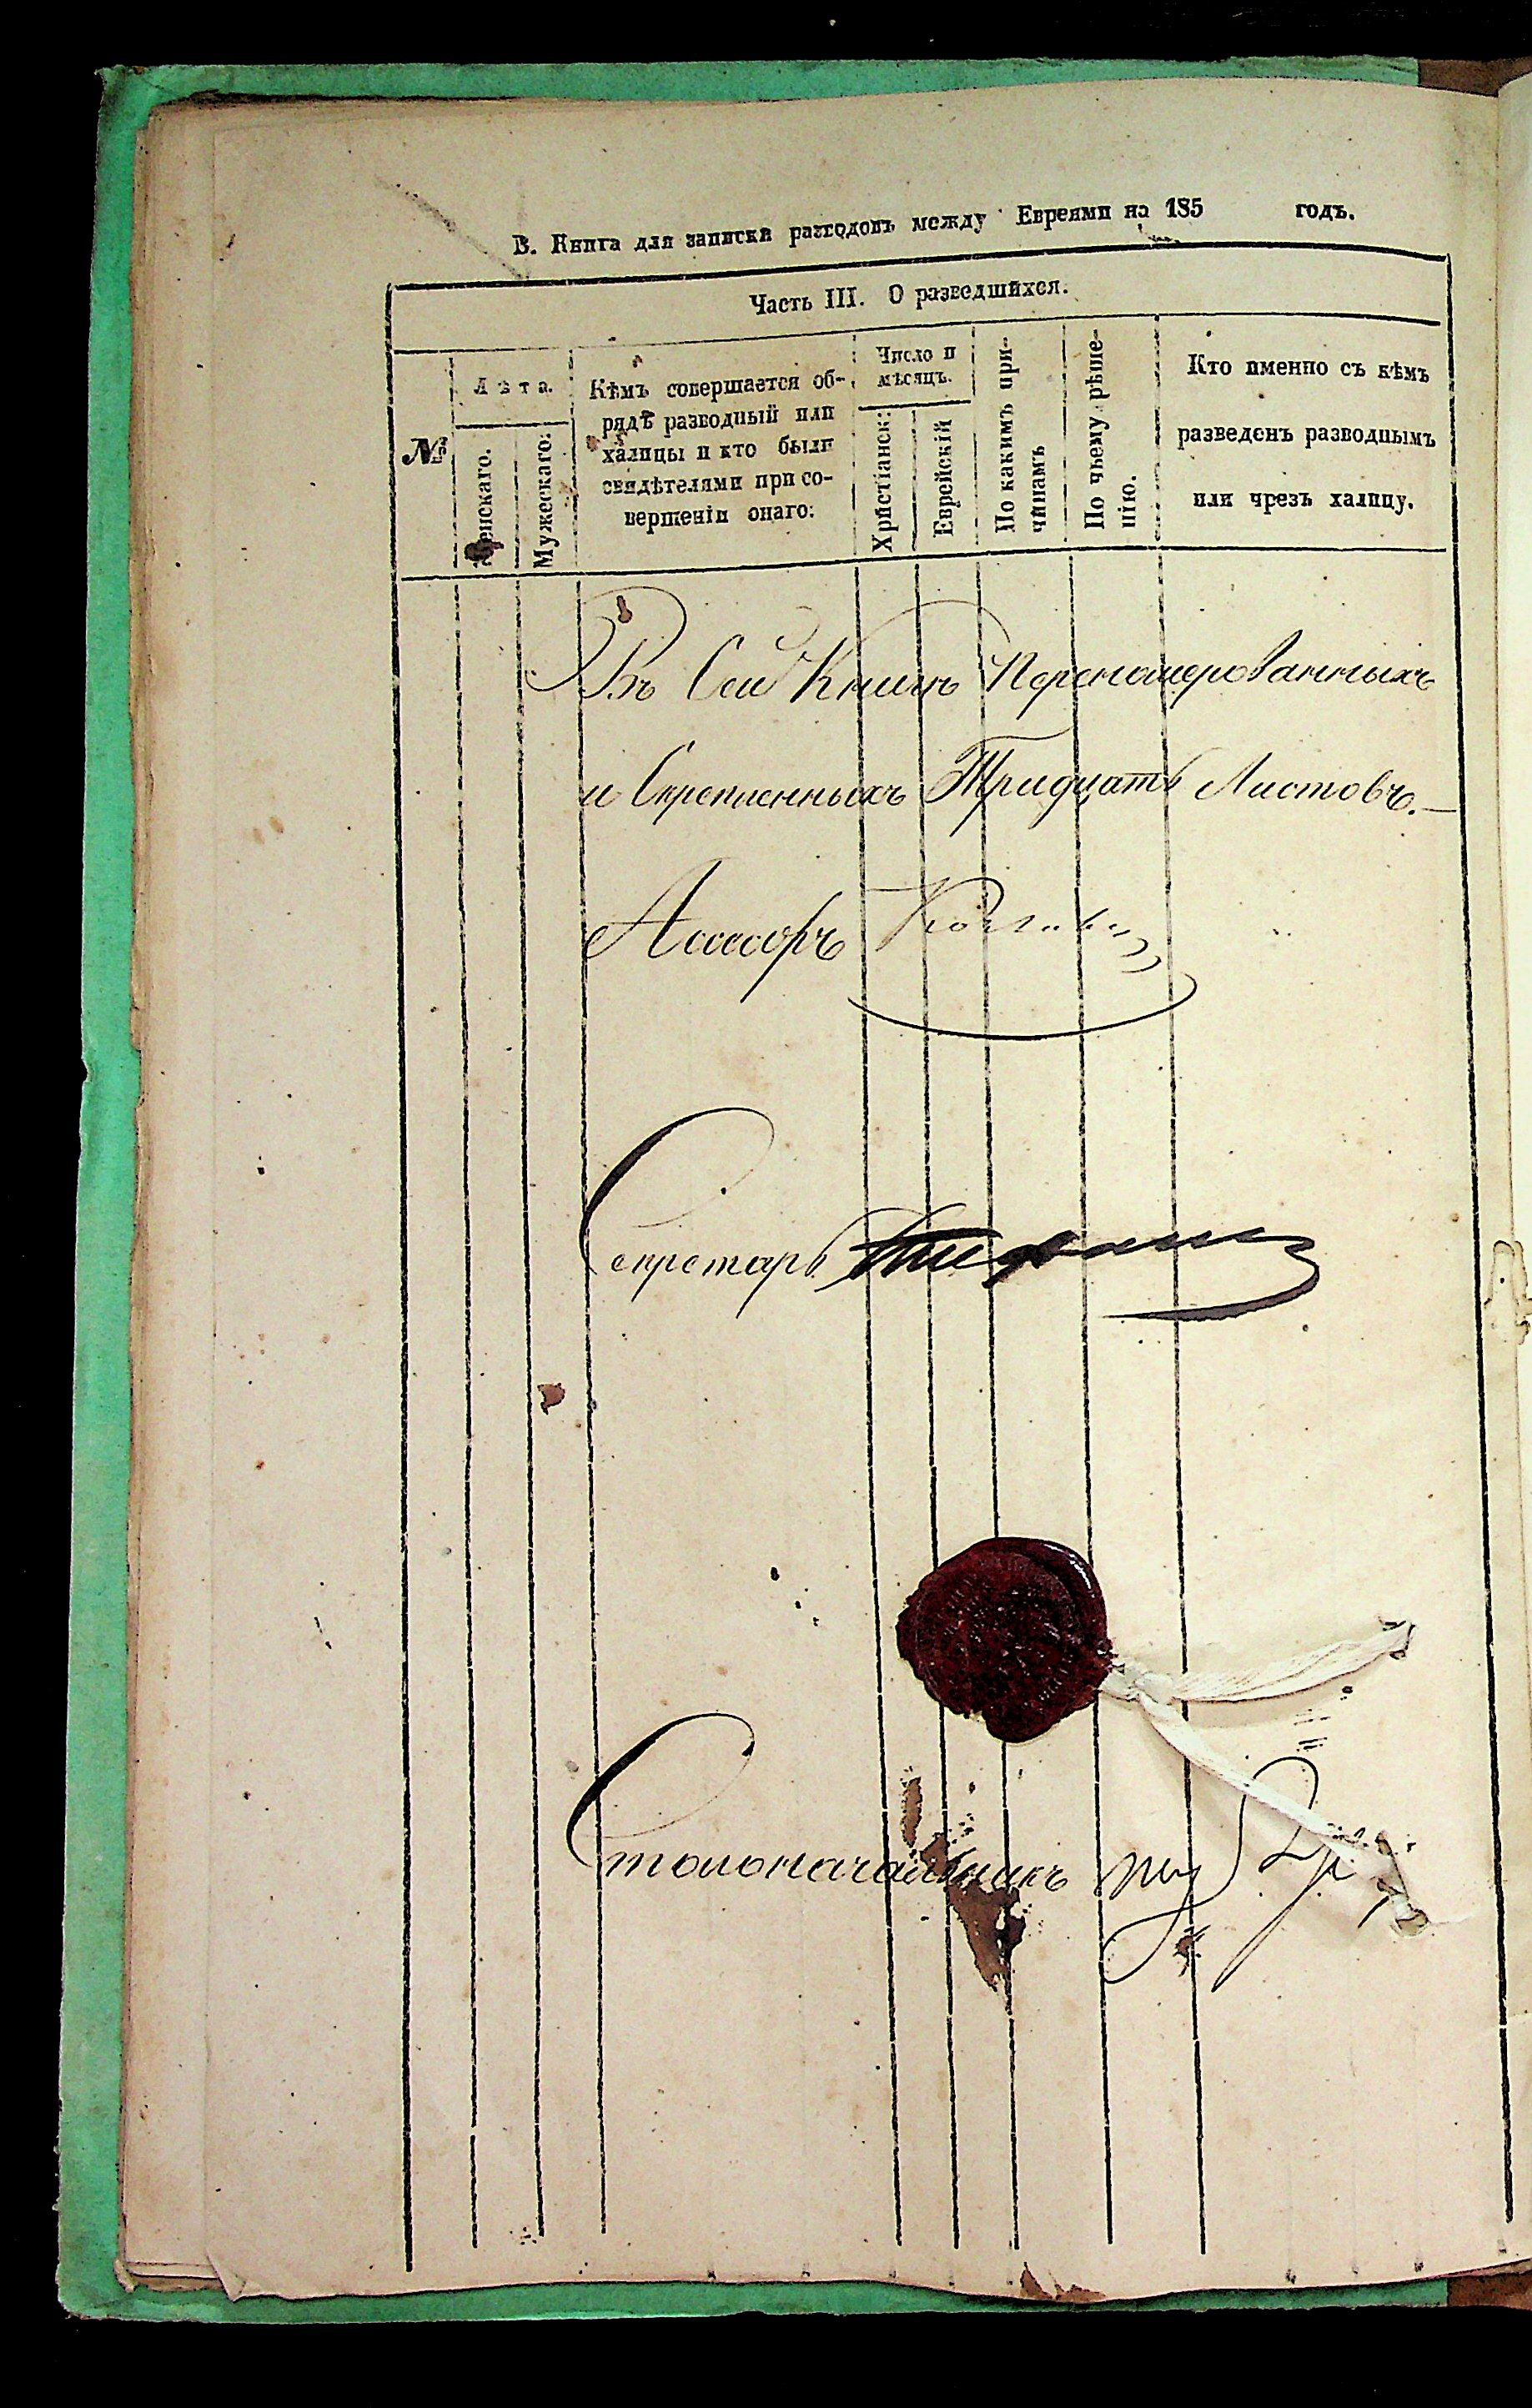 В. Книга для записки разводовъ между Евреями на 185 годъ.
Часть III. О разведшихся.
№
Лѣта.
Женскаго.
Мужескаго.
Кѣмъ совершается об-
рядъ разводный или
халицы и кто были
свидѣтелями при со-
вершеніи онаго:
Число и
мѣсяцъ.
Христіанск:
Еврейскій
По какимъ при-
чинамъ
По чьему рѣше-
нію.
Кто именно съ кѣмъ
разведенъ разводнымъ
или чрезъ халицу.
Въ Сей Книгѣ Перепомерованныхъ
и Скрепленныхъ Тридцать Листовъ.—
Ассесоръ
Секретарь
Столоначальникъ